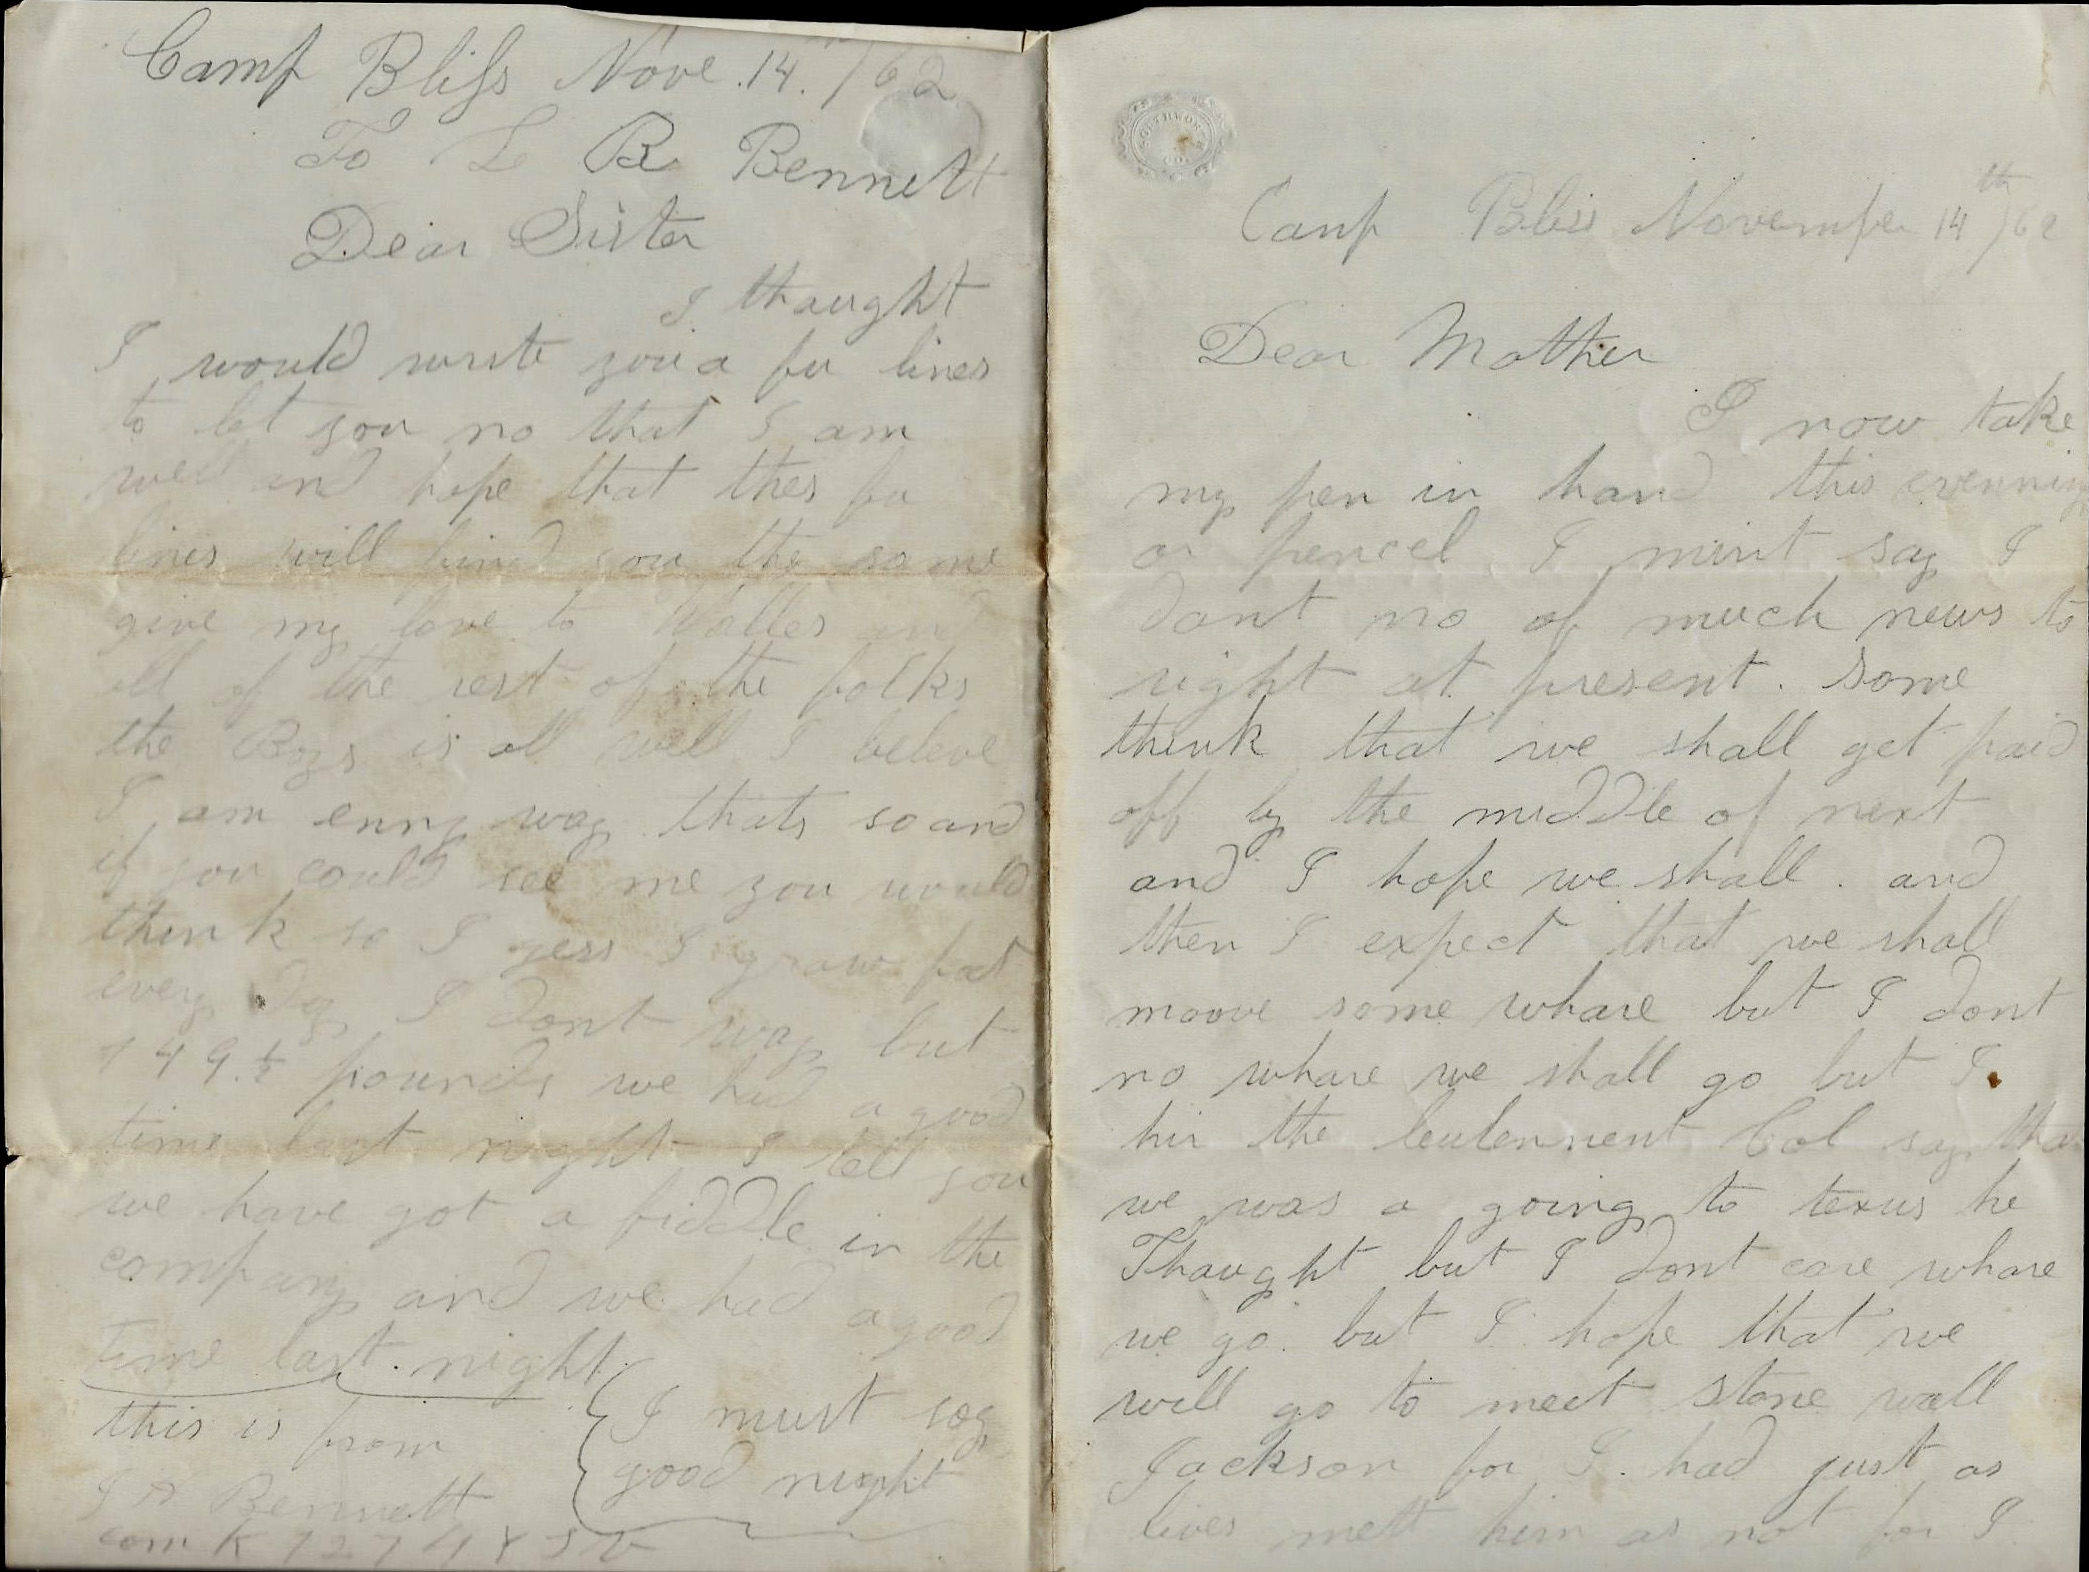 Camp Bliss Nove. 14th /62
To L B Bennett
Dear Sister
I thaught
I would write you a fu lines
to let you no that I am
well and hope that thes fu
lines will find you the same
give my love to Walter and
all of the rest of the folks
the Boys is all well I beleve
I am enny way thats so and
if you could see me you would
think so I gess I graw fat
every day I dont way but
149.½ pounds we had a good
time last night I tell you
we have got a fiddle in the
company and we had a good
time last night
this is from
J A Bennett
com K 127 N Y S V
I must say
good night
SOUTHWORTH
CO.
Camp Bliss Novemper 14th /62
Dear Mother
I now take
my pen in hand this evenning
or pencel I mint say I
dont no of much news to
right at present. Some
think that we shall get paid
off by the middle of next
and I hope we shall. and
then I expect that we shall
moove some whare but I dont
no whare we shall go but I
hir the leutennent Col say that
we was a going to texus he
Thaught but I dont care whare
we go. but I hope that we
will go to meet stone wall
Jackson for I. had just as
lives mett him as not for I